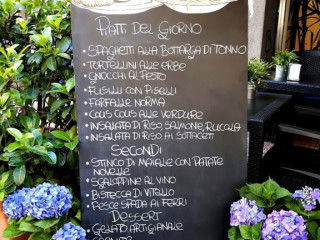 PIATTI DEL GIORNO
• SPAGHETTI ALLA BOTTARGA DI TONNO
• TORTELLINI ALLE ERBE
• GNOCCHI AL PESTO
• FUSILLI CON PISELLI
• FARFALLE NORMA
• COUS COUS ALLE VERDURE
• INSALATA DI RISO SALMONE, RUCOLA
• INSALATA DI RISO AI SOTTACETI
SECONDI
• STINCO DI MAIALE CON PATATE
NOVELLE
• SCALOPPINE AL VINO
• BISTECCA DI VITELLO
• PESCE SPADA AI FERRI
DESSERT
• GELATO ARTIGIANALE